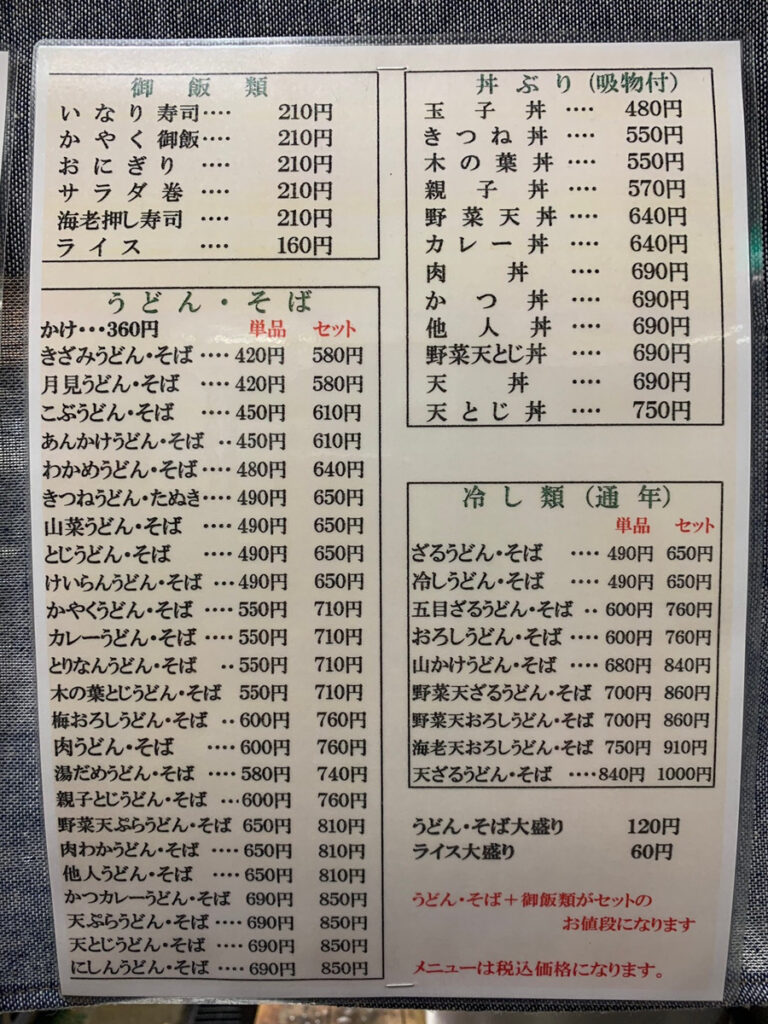 御飯類
いなり寿司‥‥ 210円
かやく御飯‥‥ 210円
おにぎり ‥‥ 210円
サラダ巻 ‥‥ 210円
海老押し寿司 ‥‥ 210円
ライス ‥‥ 160円
うどん・そば
かけ・・・360円 単品 セット
きざみうどん・そば ‥‥ 420円 580円
月見うどん・そば ‥‥ 420円 580円
こぶうどん・そば ‥‥ 450円 610円
あんかけうどん・そば ‥ 450円 610円
わかめうどん・そば ‥‥ 480円 640円
きつねうどん・たぬき ‥‥ 490円 650円
山菜うどん・そば ‥‥ 490円 650円
とじうどん・そば ‥‥ 490円 650円
けいらんうどん・そば … 490円 650円
かやくうどん・そば ‥‥ 550円 710円
カレーうどん・そば ‥‥ 550円 710円
とりなんうどん・そば ‥ 550円 710円
木の葉とじうどん・そば 550円 710円
梅おろしうどん・そば ‥ 600円 760円
肉うどん・そば ‥‥ 600円 760円
湯だめうどん・そば ‥‥ 580円 740円
親子とじうどん・そば … 600円 760円
野菜天ぷらうどん・そば 650円 810円
肉わかうどん・そば ‥‥ 650円 810円
他人うどん・そば ‥‥ 650円 810円
かつカレーうどん・そば 690円 850円
天ぷらうどん・そば ‥‥ 690円 850円
天とじうどん・そば ‥‥ 690円 850円
にしんうどん・そば ‥‥ 690円 850円
丼ぶり(吸物付)
玉子丼 ‥‥ 480円
きつね丼 ‥‥ 550円
木の葉丼 ‥‥ 550円
親子丼 ‥‥ 570円
野菜天丼 ‥‥ 640円
カレー丼 ‥‥ 640円
肉丼 ‥‥ 690円
かつ丼 ‥‥ 690円
他人丼 ‥‥ 690円
野菜天とじ丼 ‥‥ 690円
天丼 ‥‥ 690円
天とじ丼 ‥‥ 750円
冷し類(通年)
単品 セット
ざるうどん・そば ‥‥ 490円 650円
冷しうどん・そば ‥‥ 490円 650円
五目ざるうどん・そば ‥ 600円 760円
おろしうどん・そば ‥‥ 600円 760円
山かけうどん・そば ‥‥ 680円 840円
野菜天ざるうどん・そば 700円 860円
野菜天おろしうどん・そば 700円 860円
海老天おろしうどん・そば 750円 910円
天ざるうどん・そば ‥‥ 840円 1000円
うどん・そば大盛り 120円
ライス大盛り 60円
うどん・そば+御飯類がセットの
お値段になります
メニューは税込価格になります。